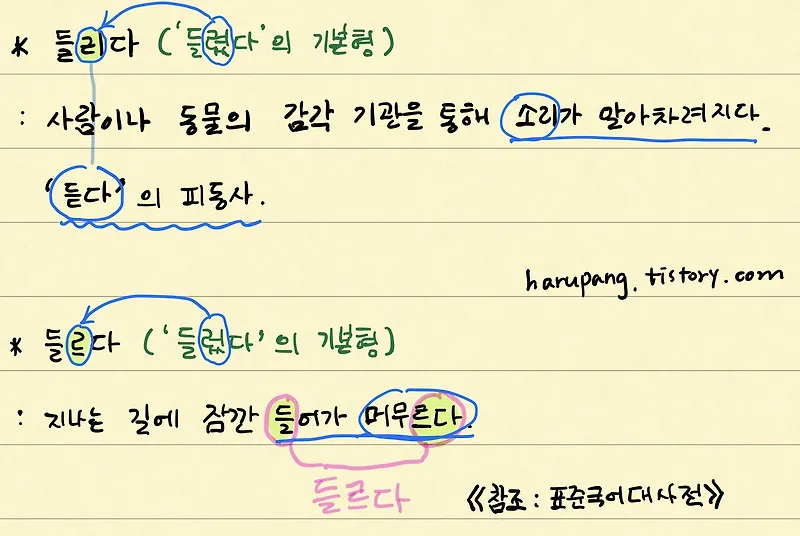 * 들리다 ('들렸다'의 기본형)
: 사람이나 동물의 감각 기관을 통해 소리가 알아차려지다.
'듣다'의 피동사.
harupang.tistory.com
* 들르다 ('들렀다'의 기본형)
: 지나는 길에 잠깐 들어가 머무르다.
들르다
《참조 : 표준국어대사전》